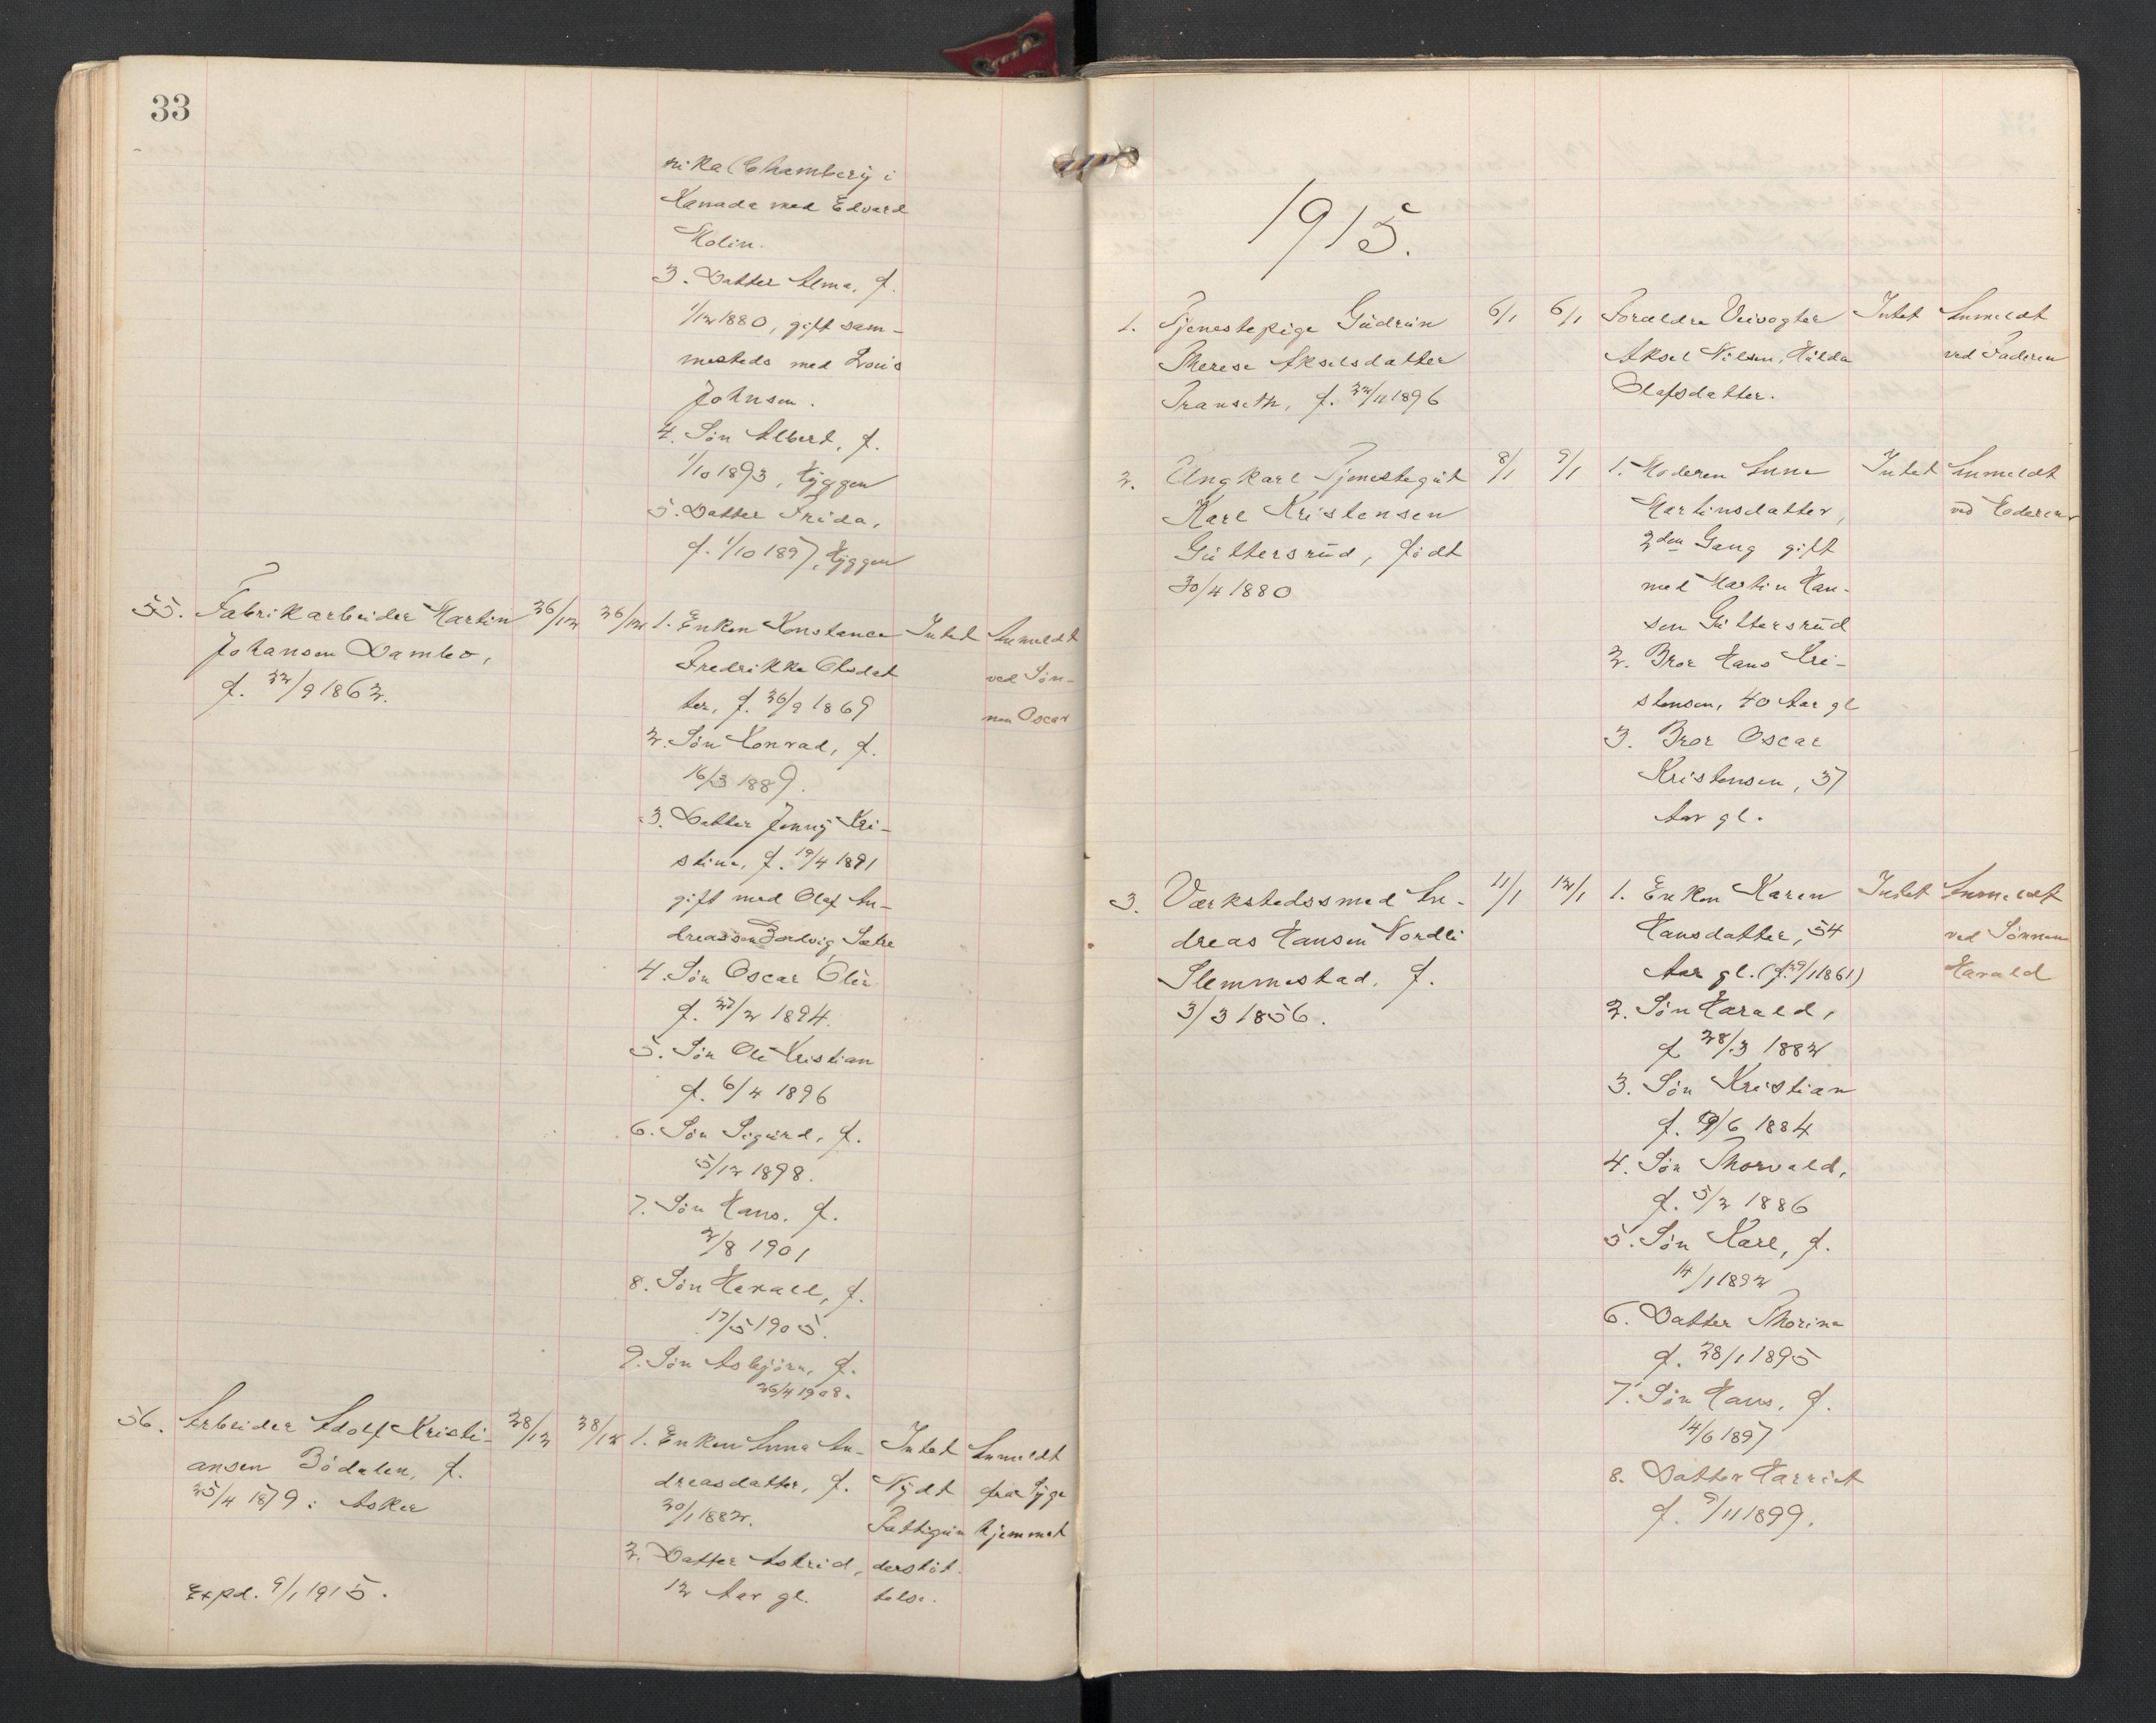 33
rika (Chambery i
Kanada med Edvard
Molin.
3. Datter Alma, f.
1/12 1880, gift sam-
mesteds med Louis
Johnsen.
4. Søn Albert, f.
1/10 1893, Hyggen
5. Datter Frida,
f. 1/10 1897, Hyggen
55. Fabrikarbeider Martin 26/12 26/12 1. Enken Konstance Intet Anmeldt
Johansen Dambo, Fredrikke Olsdat ved Søn-
f. 22/9 1862. ter, f. 26/9 1869 nen Oscar
2. Søn Konrad, f.
16/3 1889.
3. Datter Jenny Kri-
stine, f. 19/4 1891
gift med Olaf An-
dreassen Sætre
4. Søn Oscar
f. 27/2 1894.
5. Søn Ole Kristian
f. 6/4 1896
6. Søn Sigurd, f.
5/12 1898.
7. Søn Hans, f.
2/8 1901
8. Søn Harald, f.
17/5 1905.
9. Søn Asbjørn, f.
26/4 1908.
56. Arbeider Adolf Kristi- 28/12 28/12 1. Enken Anna An- Intet Anmeldt
ansen Bødalen, f. dreasdatter, f. Nydt fra Syge
25/4 1879 i Asker 20/1 1882. Fattigun hjemmet
2. Datter Astrid, derstøt-
12 Aar gl. telse.
Expd. 9/1 1915.
1915.
1. Tjenestepige Gudrun 6/1 6/1 Forældre Veivogter Intet Anmeldt
Therese Akselsdatter Aksel Nilsen, Hilda ved Faderen
Transeth, f. 22/11 1896 Olafsdatter.
2. Ungkarl Tjenestegut 8/1 9/1 1. Moderen Anne Intet Anmeldt
Karl Kristensen Martinsdatter, ved Moderen
Guttersrud, født 2den Gang gift
30/4 1880 med Martin Han-
sen Guttersrud
2. Bror Hans Kri-
stensen, 40 Aar gl
3. Bror Oscar
Kristensen, 37
Aar gl.
3. Værkstedssmed An- 11/1 12/1 1. Enken Karen Intet Anmeldt
dreas Hansen Nordli Hansdatter, 54 ved Sønnen
Slemmestad, f. Aar gl. (f. 29/1 1861) Harald
3/3 1856. 2. Søn Harald,
f. 28/3 1882
3. Søn Kristian
f. 9/6 1884
4. Søn Thorvald,
f. 5/2 1886
5. Søn Karl, f.
14/1 1892
6. Datter Thorine
f. 28/1 1895
7. Søn Hans, f.
14/6 1897
8. Datter Harriet
f. 9/11 1899.